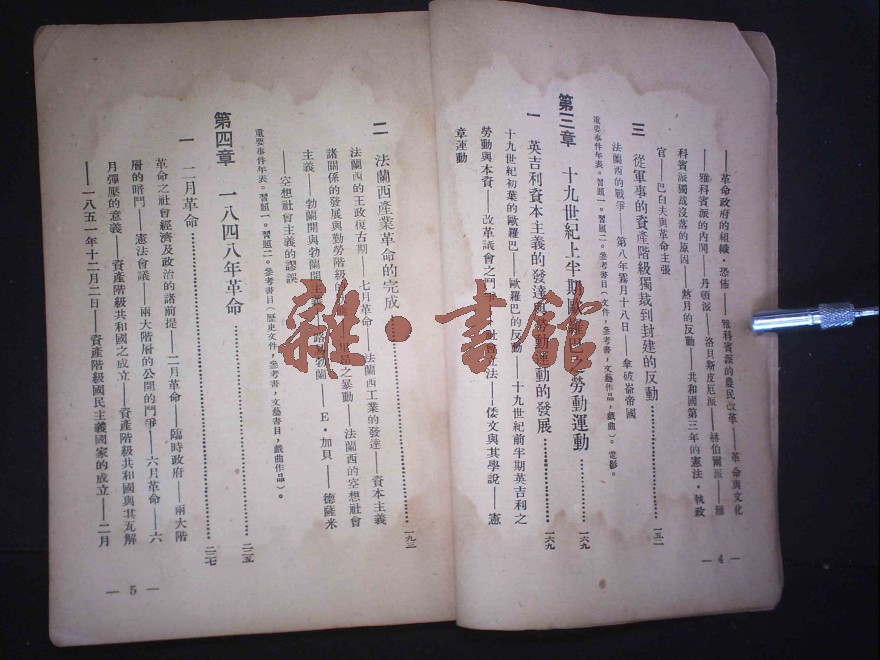 ——革命政府的組織・恐怖——雅科賓派的農民改革——革命與文化
——雅科賓派的內鬨——丹頓派——洛貝斯皮厄派——赫伯爾派——雅
科賓派獨裁沒落的原因——熱月的反動——共和國第三年的憲法・執政
官——巴白夫與革命主張
三 從軍事的資產階級獨裁到封建的反動……一五二
法蘭西的戰爭——第八年霧月十八日——拿破崙帝國
重要事件年表。習題一。習題二。參考書目(文件,參考書,文藝作品,戲曲)。電影。
第三章 十九世紀上半期歐羅巴之勞動運動……一六九
一 英吉利資本主義的發達與勞動運動的發展……一六九
十九世紀初葉的歐羅巴——歐羅巴的反動——十九世紀前半期英吉利之
勞動與本資——改革議會之鬥爭——立法——倭文與其學說——憲
章運動
— 4 —
二 法蘭西產業革命的完成……一九三
法蘭西的王政復古期——七月革命——法蘭西工業的發達——資本主義
諸關係的發展與勤勞階級——里昂之暴動——法蘭西的空想社會
主義——勃蘭開與勃蘭開主義——路易勃蘭——E・加貝——德薩米
——空想社會主義的謬誤
重要事件年表。習題一。習題二。參考書目(歷史文件,參考書,文藝書目,戲曲作品)。
第四章 一八四八年革命……二二五
一 二月革命……二二七
革命之社會經濟及政治的諸前提——二月革命——臨時政府——兩大階
層的暗鬥——憲法會議——兩大階層的公開的鬥爭——六月革命——六
月彈壓的意義——資產階級共和國之成立——資產階級共和國與其瓦解
——一八五一年十二月二日——資產階級國民主義國家的成立——二月
— 5 —
雜・書館